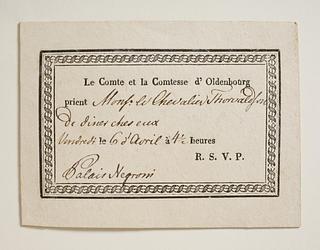 Le Comte et la Comtesse d'Oldenbourg
prient Monsr. le Chevalier Thorvaldsen
de diner ches eux
Vendredi le 6 d'Avril à 4½ heures
R. S. V. P.
Palais Negroni